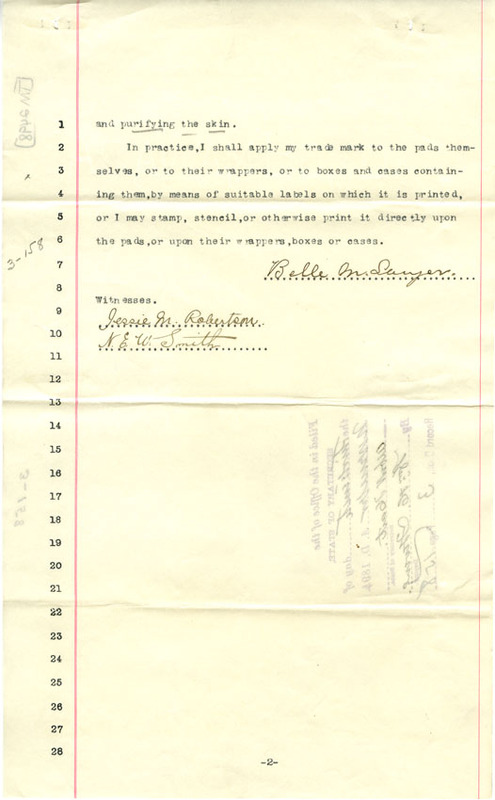 1 and purifying the skin.
2 In practice,I shall apply my trade mark to the pads them-
3 selves, or to their wrappers, or to boxes and cases contain-
4 ing them,by means of suitable labels on which it is printed,
5 or I may stamp, stencil,or otherwise print it directly upon
6 the pads,or upon their wrappers,boxes or cases.
3-158
7 Belle M. Sawyer.
8 Witnesses.
9 Jessie M. Robertson.
10 N. E. W. Smith
11
12
13
14
15
16
17
18
19
20
21
22
23
24
25
26
27
28
Filed in the Office of the
SECRETARY OF STATE
day of
A. D. 189
3-158
-2-